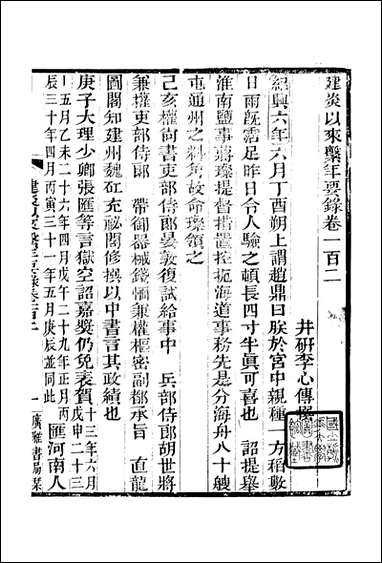 建炎以來繫年要錄卷一百二
井研李心傳撰
紹興六年六月丁酉朔上謂趙鼎曰朕於宮中親種一方稻數
日雨旣霑足昨日令人驗之頓長四寸半眞可喜也　詔提舉
淮南鹽事蔣璨提督措置控扼海道事務先是分海舟八十艘
屯通州之料角故命璨領之
己亥權尙書吏部侍郞晏敦復試給事中　兵部侍郞胡世將
兼權吏部侍郞　帶御器械錢愐兼權樞密副都承旨　直龍
圖閣知建州魏矼充祕閣修撰以中書言其政績也
庚子大理少卿張匯等言獄空詔嘉獎仍免表賀十三年六月戊申二十三
年五月乙未二十六年四月戊午二十九年正月丙
辰三十年四月丙寅三十一年五月庚辰並同此　匯河南人
建炎以來繫年要錄卷一百二
一
廣雅書局栞